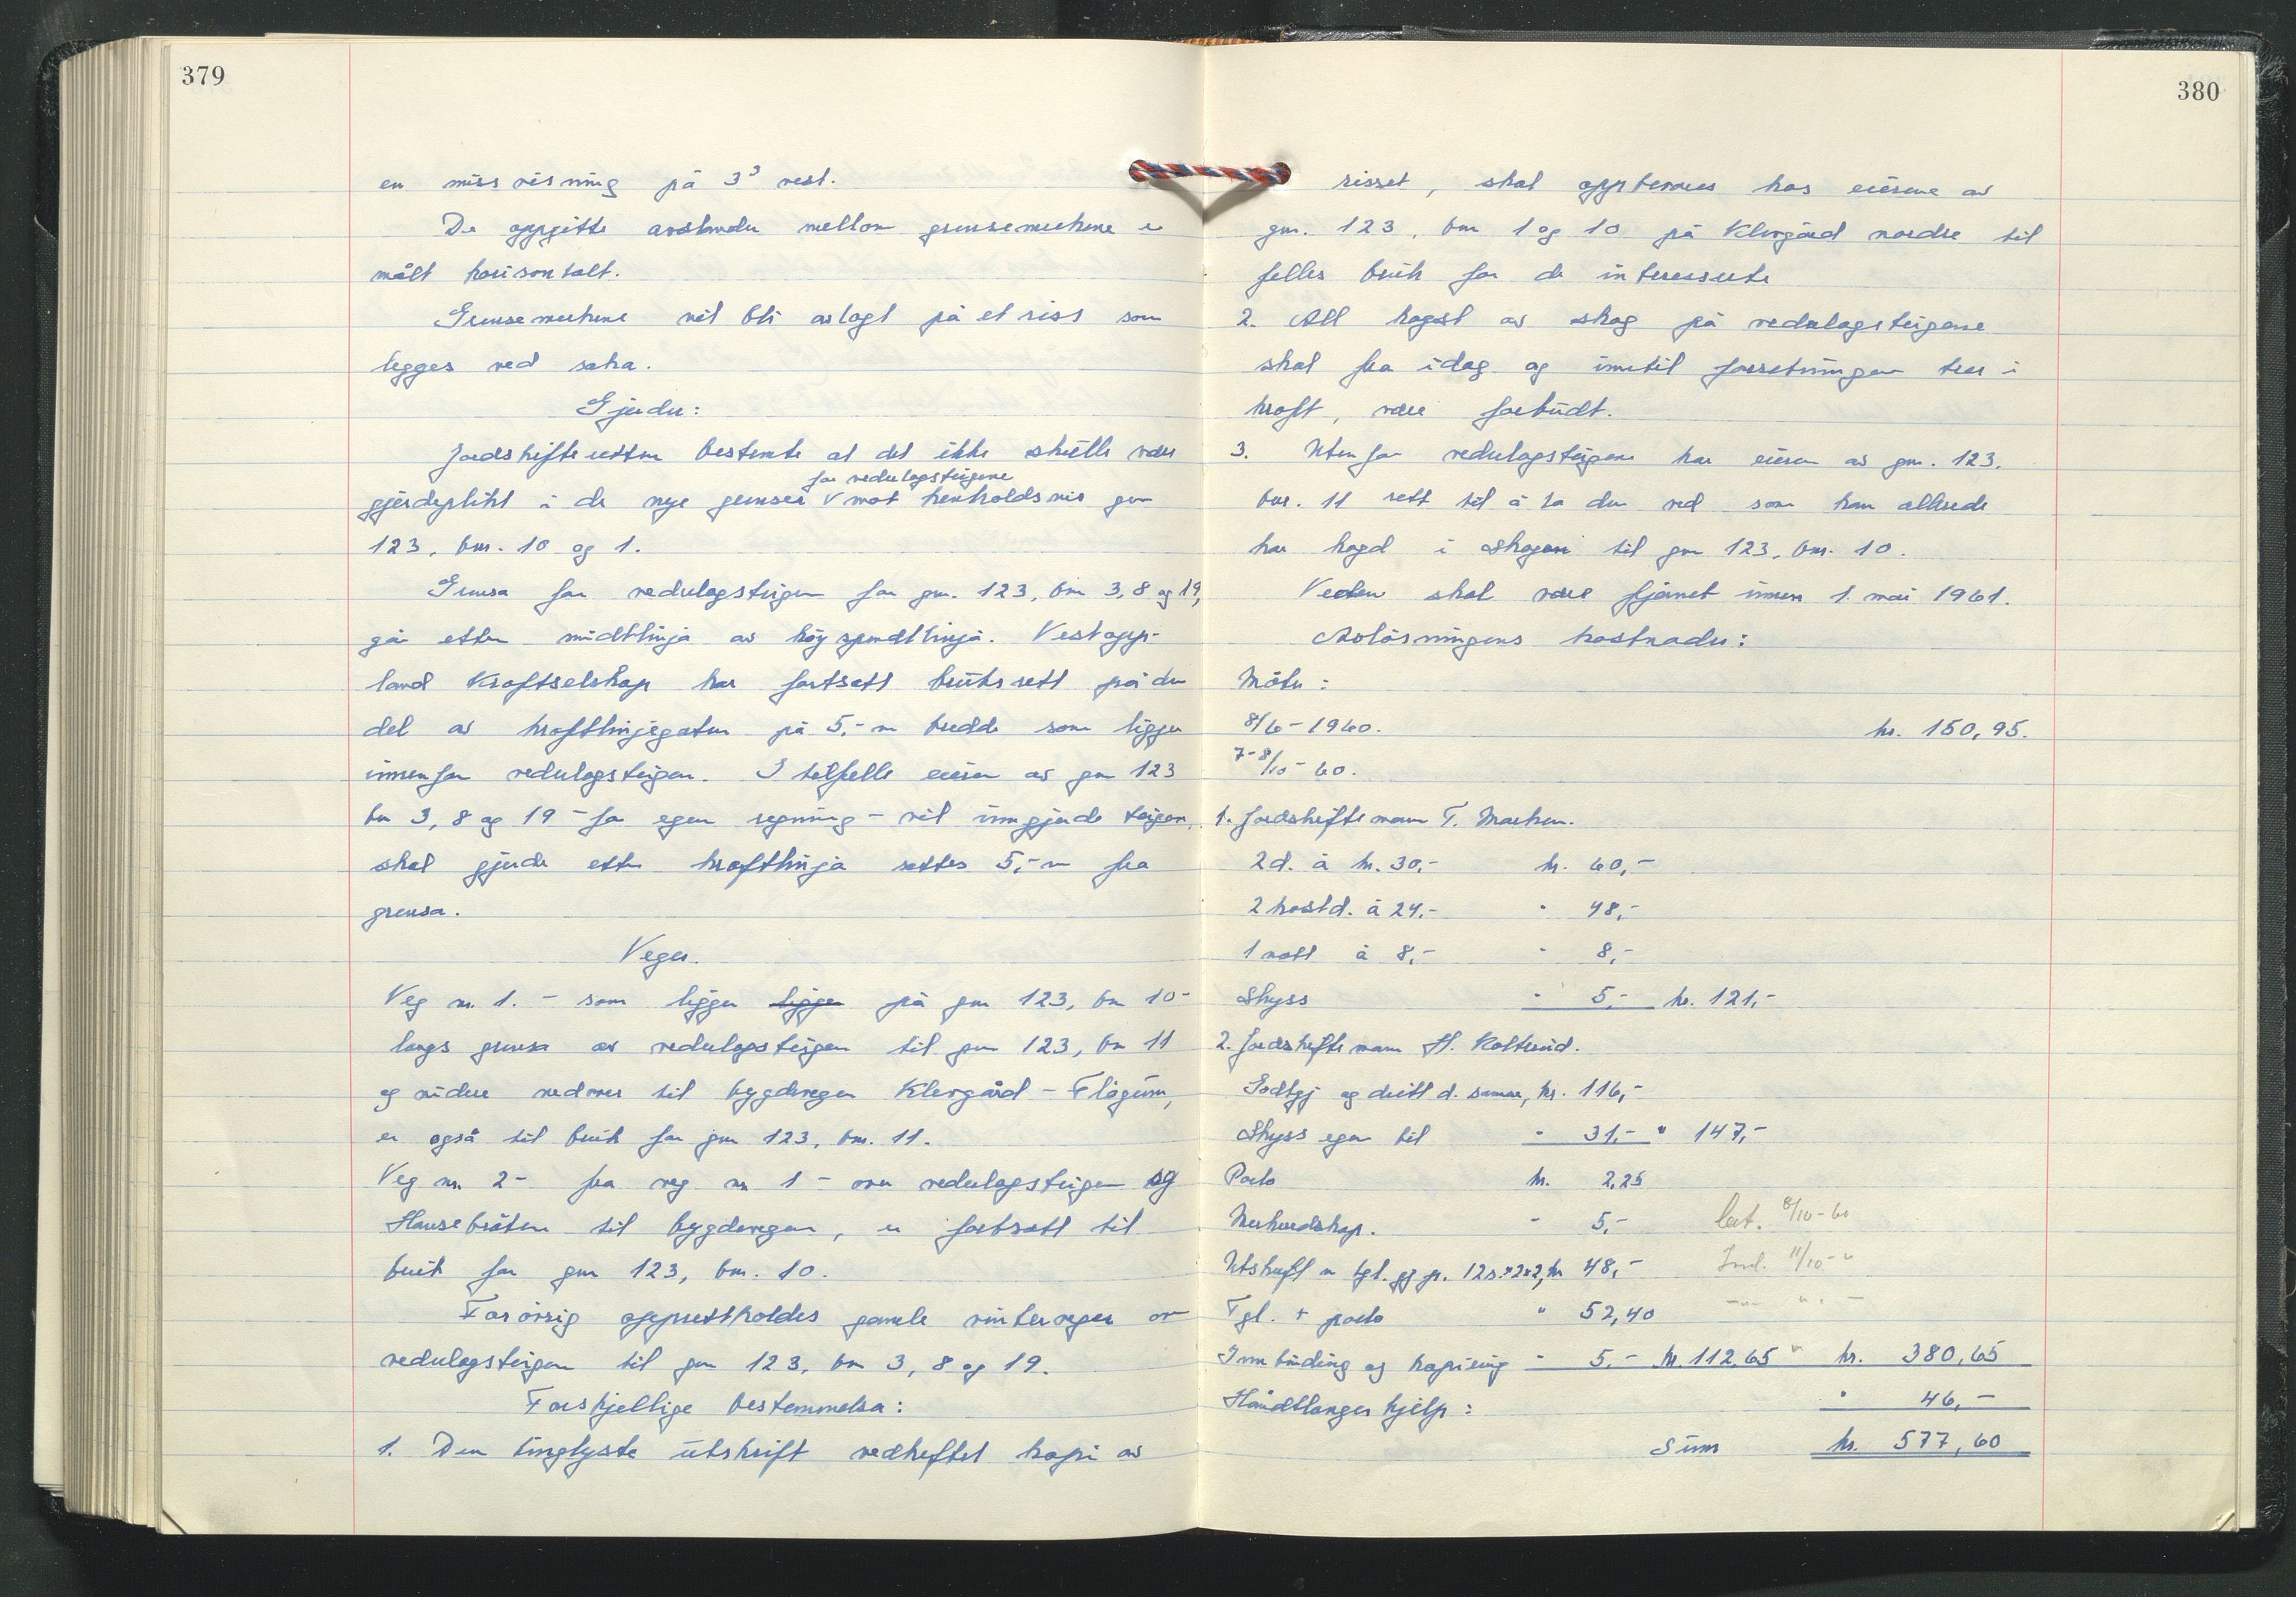 379
en missvisning på 3³ vest.
De oppgitte avstander mellom grensemerkene er
målt horisontalt.
Grensemerkene vil bli avlagt på et riss som
legges ved saka.
Gjerder:
Jordskifteretten bestemte at det ikke skulle være
for vedulagsteigene
gjerdeplikt i de nye grenser V mot henholdsvis gnr
123, bnr. 10 og 1.
Grensa for vedulagsteigen for gnr. 123, bnr 3, 8 og 19,
går etter midtlinja av høyspendtlinja. Vestopp-
land Kraftselskap har fortsatt bruksrett på den
del av kraftlinjegaten på 5,- m bredde som ligger
innenfor vedulagsteigen. I tilfelle eieren av gnr 123
bnr 3, 8 og 19 - for egen regning - vil inngjerde teigen,
skal gjerde etter kraftlinja settes 5,- m fra
grensa.
Veger.
Veg nr. 1. - som ligger ligger på gnr 123, bnr 10 -
langs grensa av vedulagsteigen til gnr 123, bnr 11
og videre nedover til bygdevegen Klevgård - Flågum,
er også til bruk for gnr 123, bnr. 11.
Veg nr. 2 - fra veg nr 1 - over vedulagsteigen og
Hansebråten til bygdevegen, er fortsatt til
bruk for gnr 123, bnr. 10.
Forøvrig opprettholdes gamle vinterveger over
vedulagsteigen til gnr 123, bnr 3, 8 og 19.
Forskjellige bestemmelser:
1. Den tinglyste utskrift vedheftet kopi av
380
risset, skal oppbevares hos eierne av
gnr. 123, bnr 1 og 10 på Klevgård nordre til
felles bruk for de interesserte
2. All hogst av skog på vedulagsteigene
skal fra idag og inntil forretningen trer i
kraft, være forbudt.
3. Utenfor vedulagsteigene har eieren av gnr. 123,
bnr. 11 rett til å ta den ved som han allerede
har hogd i skogen til gnr 123, bnr. 10.
Veden skal være fjernet innen 1. mai 1961.
Avløsningens kostnader:
Møter:
8/6 - 1960. kr. 150,95.
7-8/10 - 60.
1. Jordskiftemann T. Marken.
2 d. à kr. 30,- kr. 60,-
2 kostd. à 24,- " 48,-
1 natt à 8,- " 8,-
Skyss " 5,- kr. 121,-
2. Jordskiftemann H. Kolterud.
Godtgj og diett d. samme, kr. 116,-
Skyss egen bil " 31,- " 147,-
Porto kr. 2,25
Merkredskap. " 5,- 8/10-60
Utskrift m tgl. gj pr. 12s.×2×2, kr 48,- Innl. 11/10 - "
Tgl. + porto " 52,40 -"- ". -
Innbinding og kopiering " 5,- kr. 112,65 " kr. 380,65
Håndtlangerhjelp: " 46,-
Sum kr. 577,60